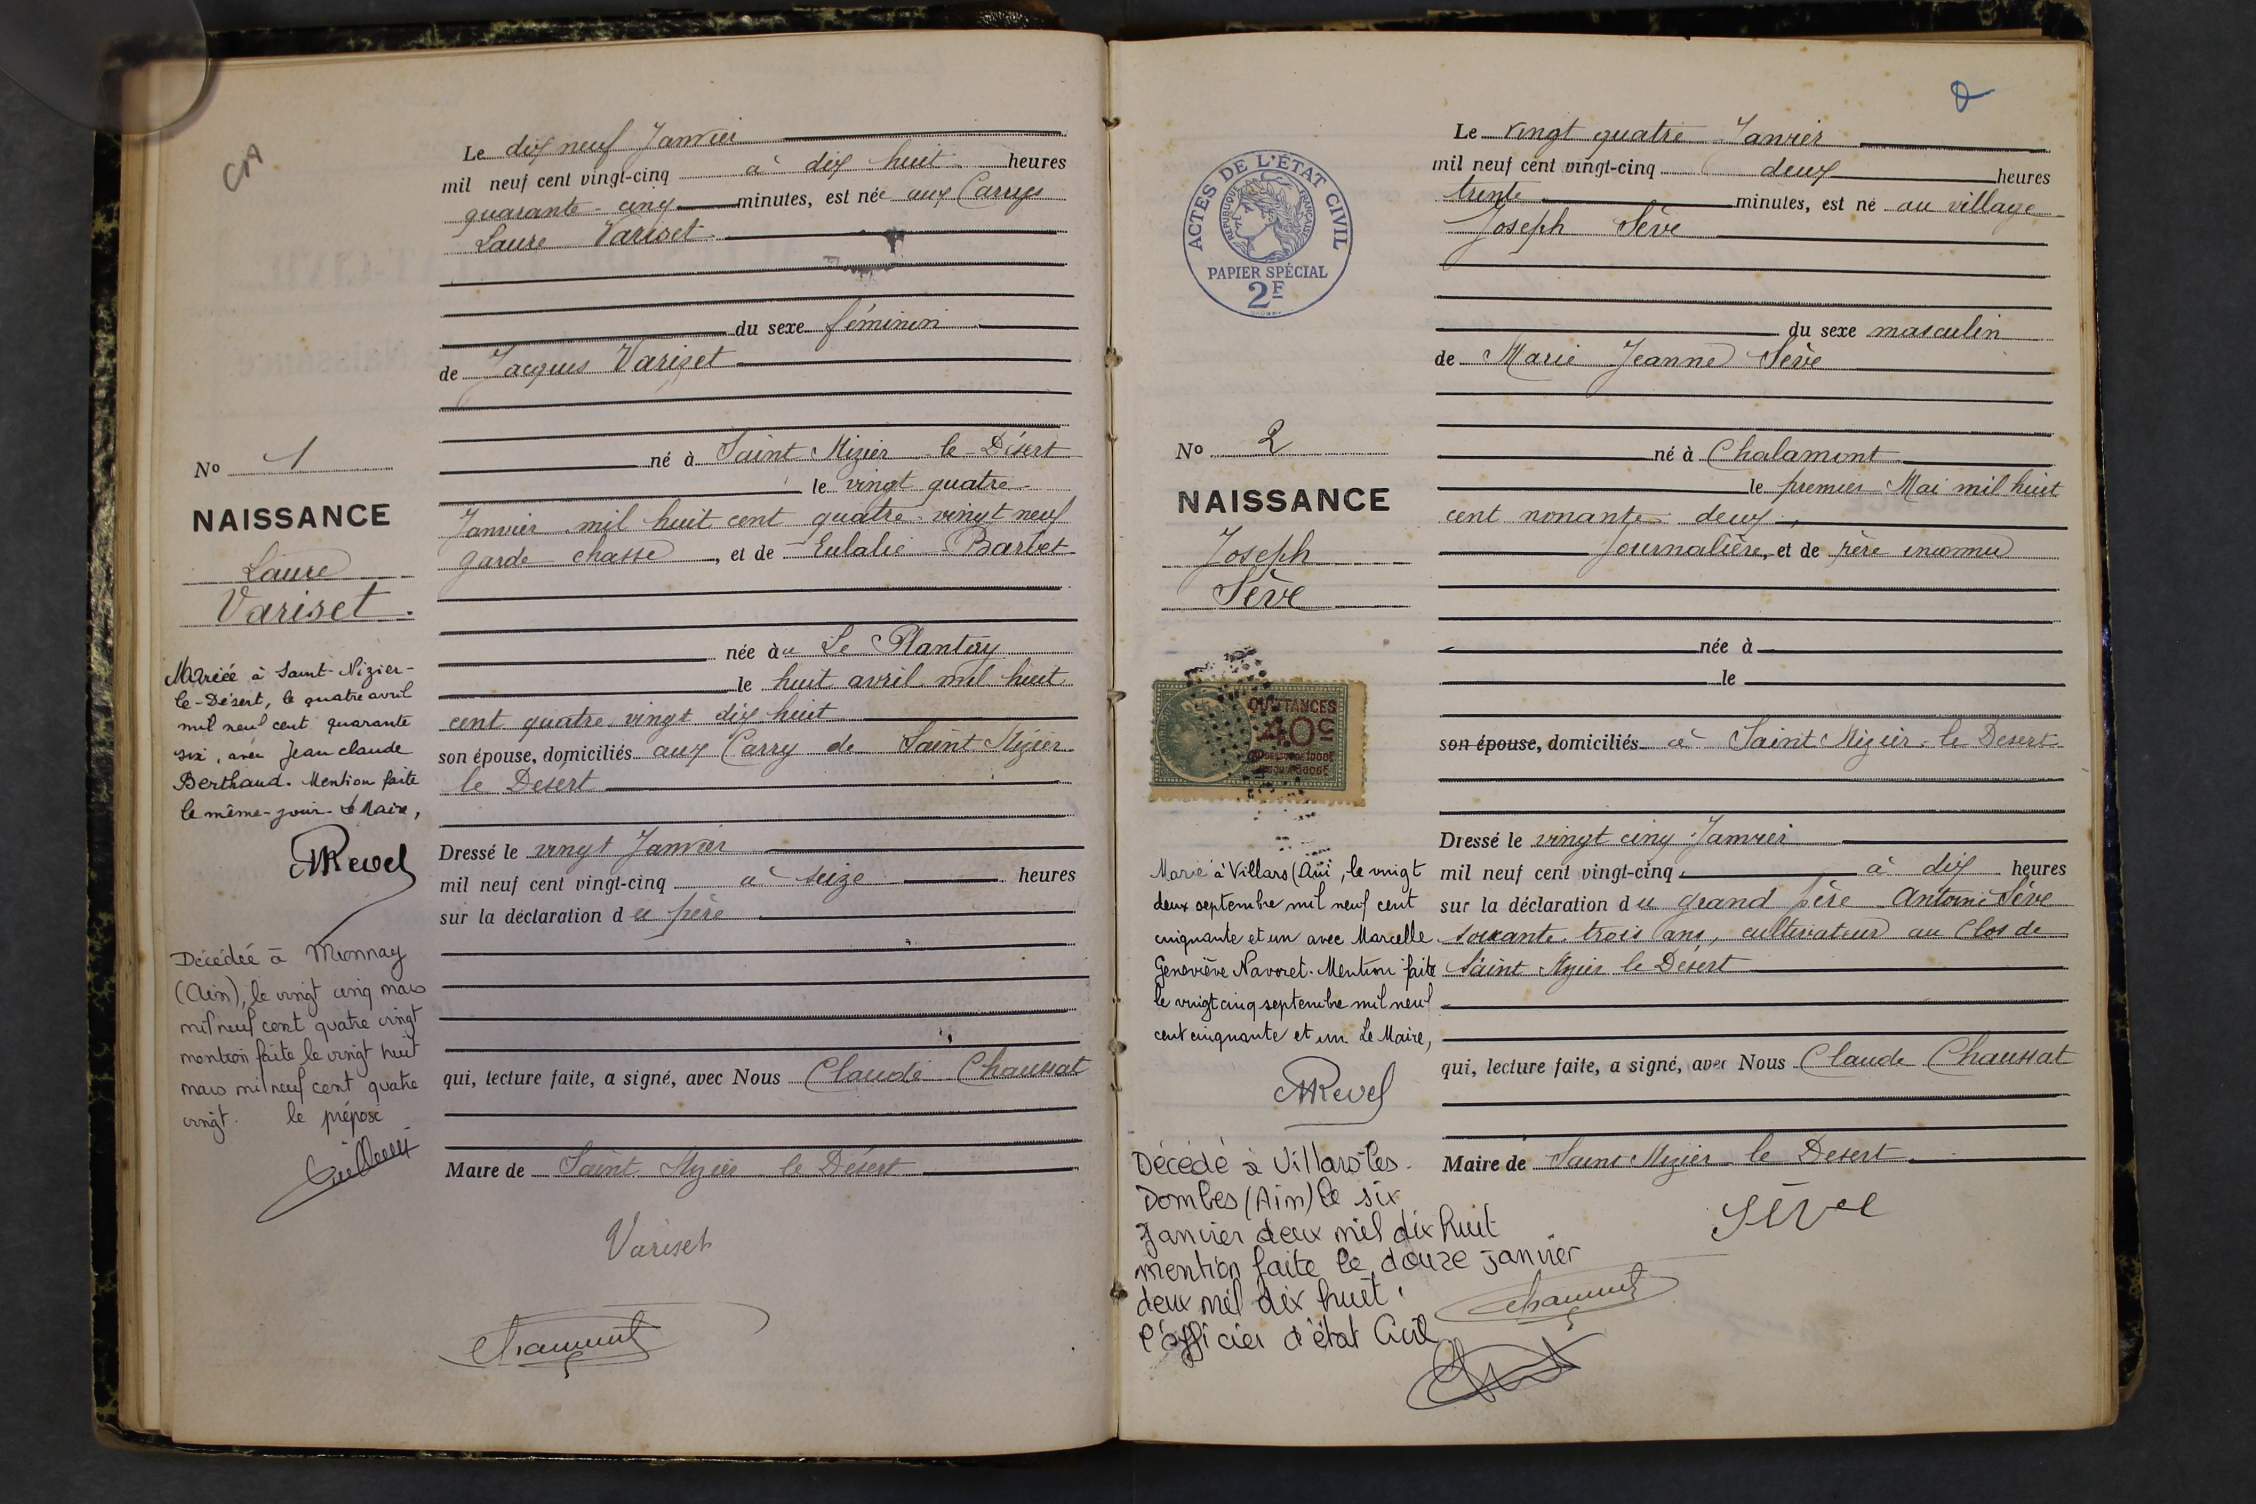 CA
Le dix neuf Janvier
mil neuf cent vingt-cinq à dix huit heures
quarante-cinq minutes, est née aux Carrys
Laure Variset
du sexe féminin
de Jacques Variset
né à Saint Nizier le Désert
le vingt quatre
Janvier mil huit cent quatre vingt neuf
garde chasse, et de Eulalie Barbet
née à Le Plantay
le huit avril mil huit
cent quatre vingt dix huit
son épouse, domiciliés aux Carry de Saint Nizier
le Désert
Dressé le vingt Janvier
mil neuf cent vingt-cinq à seize heures
sur la déclaration du père
qui, lecture faite, a signé, avec Nous Claude Chaussat
Maire de Saint Nizier le Désert
Variset
No 1
NAISSANCE
Laure
Variset.
Mariée à Saint-Nizier-
le-Désert, le quatre avril
mil neuf cent quarante
six, avec Jean Claude
Berthaud. Mention faite
le même-jour. Le Maire,
MRevel
Décédée à Mionnay
(Ain), le vingt cinq mars
mil neuf cent quatre vingt
mention faite le vingt huit
mars mil neuf cent quatre
vingt. le préposé
2
ACTES DE L'ÉTAT CIVIL
RÉPUBLIQUE FRANÇAISE
PAPIER SPÉCIAL
2F
Le vingt quatre Janvier
mil neuf cent vingt-cinq deux heures
trente minutes, est né au village
Joseph Sève
du sexe masculin
de Marie Jeanne Sève
né à Chalamont
le premier Mai mil huit
cent nonante deux,
Journalière, et de père inconnu
née à
le
son épouse, domiciliés à Saint Nizier le Désert
Dressé le vingt cinq Janvier
mil neuf cent vingt-cinq à dix heures
sur la déclaration du grand père Antoine Sève
soixante trois ans, cultivateur au Clos de
Saint Nizier le Désert
qui, lecture faite, a signé, avec Nous Claude Chaussat
Maire de Saint Nizier le Désert
Sève
No 2
NAISSANCE
Joseph
Sève
QUITTANCES
40c
Marié à Villars (Ain), le vingt
deux septembre mil neuf cent
cinquante et un avec Marcelle
Geneviève Navoret. Mention faite
le vingt cinq septembre mil neuf
cent cinquante et un. Le Maire,
MRevel
Décédé à Villars-les-
Dombes (Ain) le six
Janvier deux mil dix huit
mention faite le douze janvier
deux mil dix huit.
l'officier d'état Civil